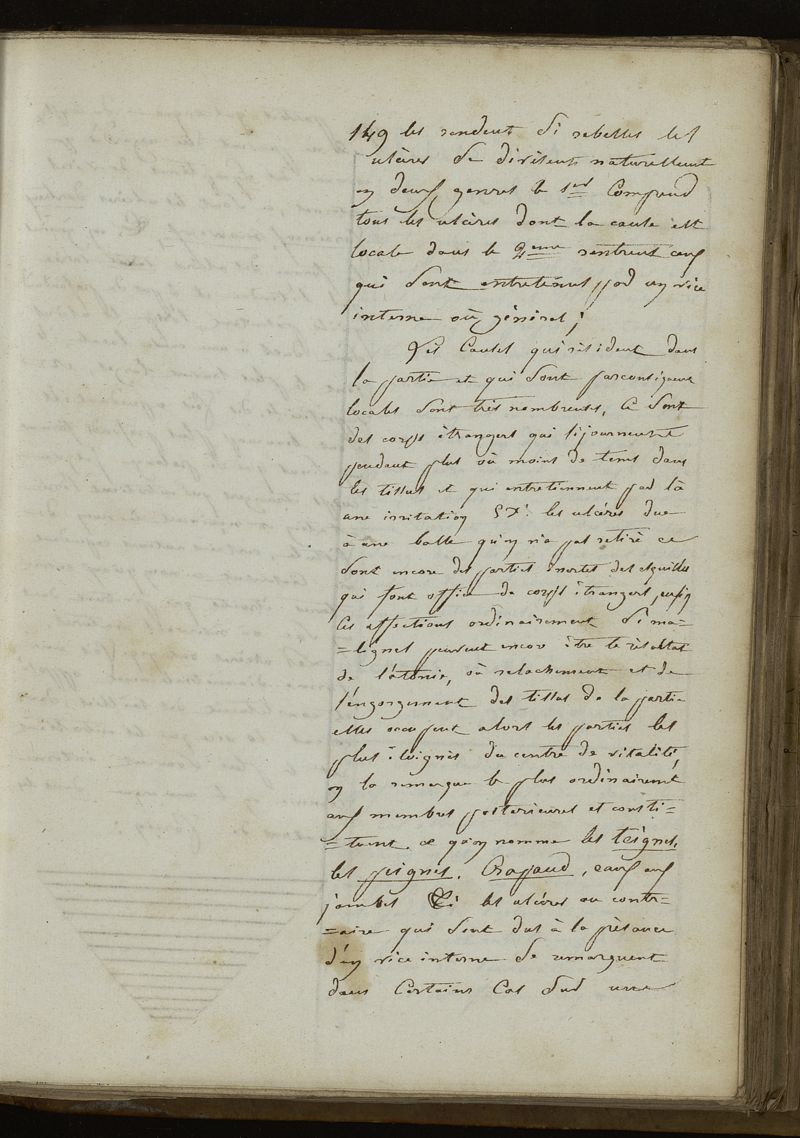 149 les rendent si rebelles les
ulcères se divisent naturellement
en deux genres le 1er comprend
tous les ulcères dont la cause est
locale dans le 2eme rentrent ceux
qui sont entretenus par un vice
interne où général;
Les causes qui résident dans
la partie et qui sont parconséquent
locales sont très nombreuses, ce sont
des corps étrangers qui séjournent
pendant plus où moins de tems dans
les tissus et qui entretiennent par là
une irritation les ulcères due
à une balle qu'on n'a pas retiré ce
sont encore des parties inertes des esquilles
qui font office de corps étrangers, enfin
ces affections ordinairement si ma=
=lignes peuvent encore être le résultat
de l'atonie, où relachement et de
l'engorgement des tissus de la partie
elles occupent alors les parties les
plus éloignés du centre de vitalité,
on la remarque le plus ordinairement
aux membres posterieures et consti=
=tuent ce qu'on nomme les teignes,
les peignes, Crapaud, eaux aux
jambes Si les ulcères au contr=
=aire qui sont dus à la présance
d'un vice interne se remarquent
dans certains cas sur une